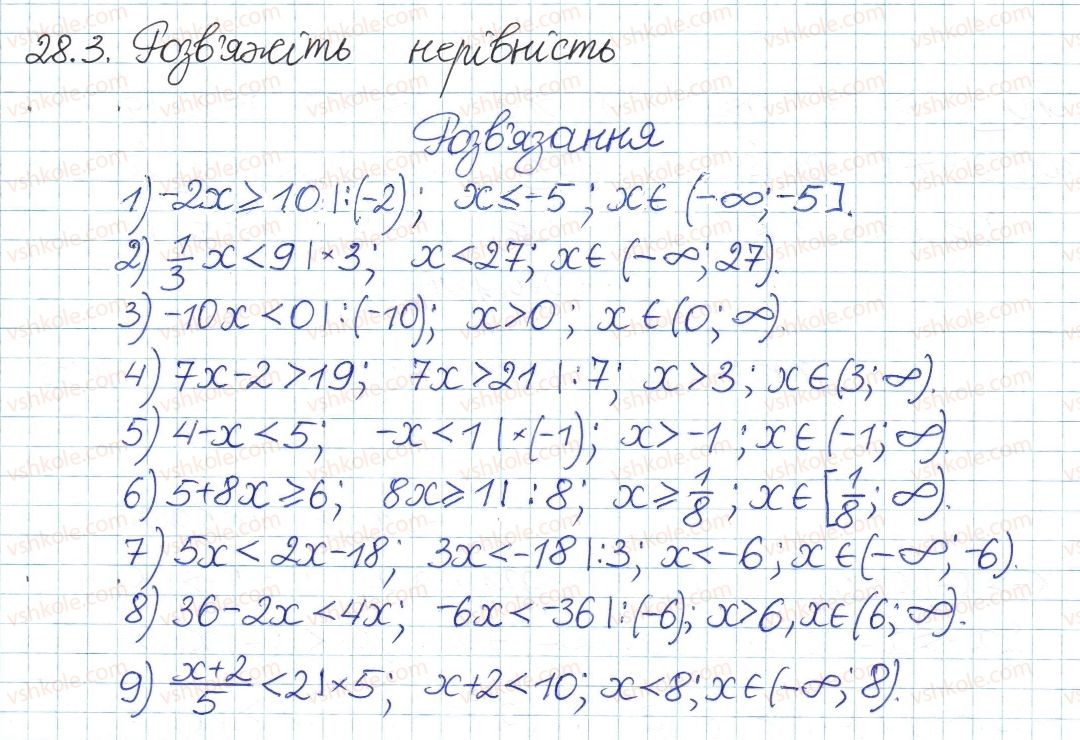 28.3. Розв'яжіть нерівність
Розв'язання
1) -2x ≥ 10 |:(-2); x ≤ -5; x ∈ (-∞; -5].
2) 1/3 x < 9 | × 3; x < 27; x ∈ (-∞; 27).
3) -10x < 0 |:(-10); x > 0; x ∈ (0; ∞).
4) 7x - 2 > 19; 7x > 21 |:7; x > 3; x ∈ (3; ∞).
5) 4 - x < 5; -x < 1 | ×(-1); x > -1; x ∈ (-1; ∞).
6) 5 + 8x ≥ 6; 8x ≥ 1 | :8; x ≥ 1/8; x ∈ [1/8; ∞).
7) 5x < 2x - 18; 3x < -18 |:3; x < -6; x ∈ (-∞; -6).
8) 36 - 2x < 4x; -6x < -36 |:(-6); x > 6, x ∈ (6; ∞).
9) (x+2)/5 < 2 | × 5; x + 2 < 10; x < 8; x ∈ (-∞; 8).